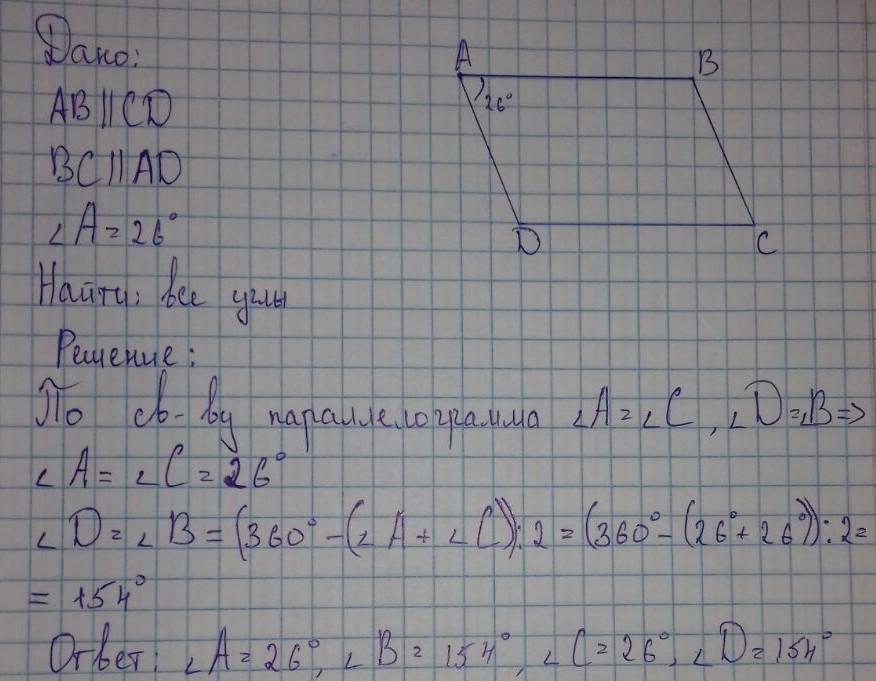 Дано:
AB||CD
BC||AD
∠A=26°
Найти: все углы
Решение:
По св-ву параллелограмма ∠A=∠C, ∠D=∠B=>
∠A=∠C=26°
∠D=∠B=(360°-(∠A+∠C)):2=(360°-(26°+26°)):2=
=154°
Ответ: ∠A=26°, ∠B=154°, ∠C=26°, ∠D=154°
A B
26°
D C